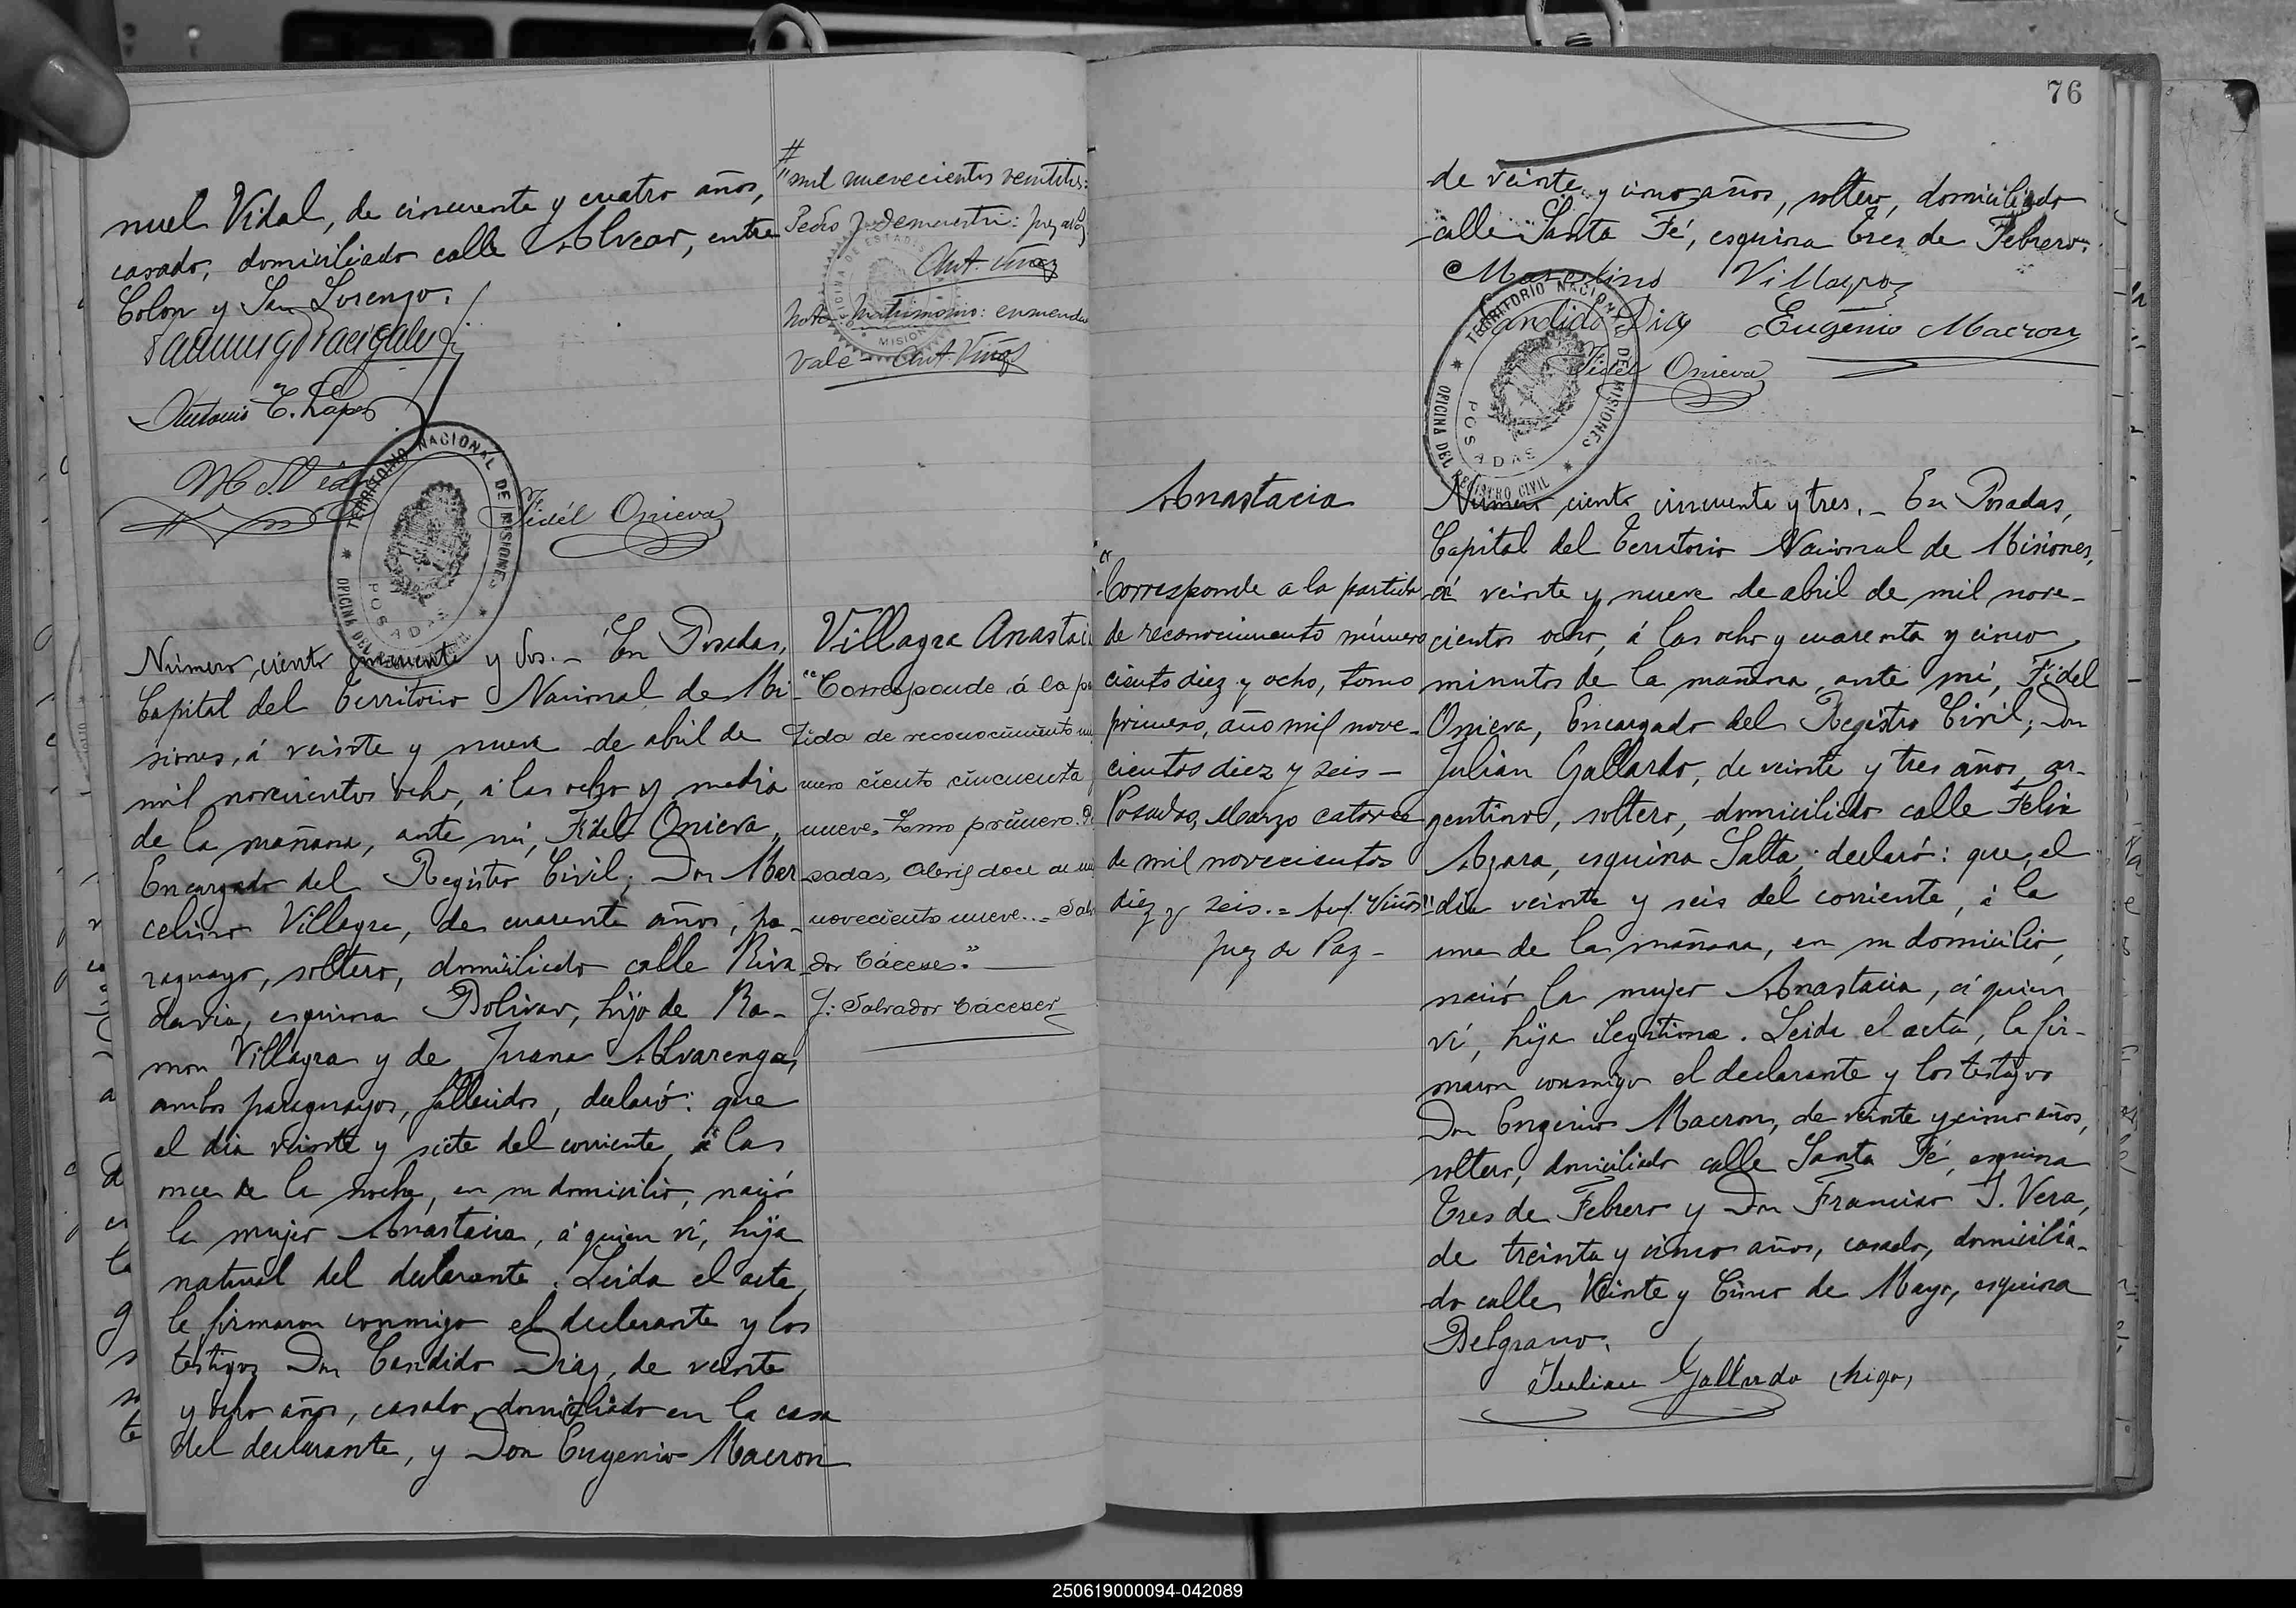 nuel Vidal, de cincuenta y cuatro años,
casado, domiciliado calle Alvear, entre
Colon y San Lorenzo.
Antonio E. Lopez
M. Vidal
Fidél Onieva
TERRITORIO NACIONAL DE MISIONES
OFICINA DEL REGISTRO CIVIL
POSADAS
#
"mil nuevecientos
Pedro J. Demaestri: Juez de Paz
Ant. Viñas
Nota Matrimonio: enmendado
Vale - Ant. Viñas
MISIONES
Número ciento cincuenta y dos. - En Posadas,
Capital del Territorio Nacional de Mi-
siones, á veinte y nueve de abril de
mil novecientos ocho, á las ocho y media
de la mañana, ante mí, Fidel Onieva,
Encargado del Registro Civil; Don Mar-
celino Villagra, de cuarenta años, pa-
raguayo, soltero, domiciliado calle Riva-
davia, esquina Bolivar, hijo de Ra-
mon Villagra y de Juana Alvarenga,
ambos paraguayos, fallecidos, declaró: que
el dia veinte y siete del corriente, á las
once de la noche, en su domicilio, nació
la mujer Anastacia, á quien ví, hija
natural del declarante. Leida el acta,
la firmaron conmigo el declarante y los
testigos Don Candido Diaz, de veinte
y ocho años, casado, domiciliado en la casa
del declarante, y Don Eugenio Macron
Villagra Anastaci
"Corresponde á la par
tida de reconocimiento nú
mero ciento cincuenta y
nueve, Tomo primero. Po
sadas, Abril doce de mil
novecientos nueve. - Salva
dor Cáceres."
J: Salvador Cáceres
76
de veinte y cinco años, soltero, domiciliado
calle Santa Fé, esquina Tres de Febrero.
Marcelino Villagra
Candido Diaz Eugenio Macron
Fidél Onieva
TERRITORIO NACIONAL DE MISIONES
OFICINA DEL REGISTRO CIVIL
POSADAS
Anastacia
"Corresponde a la partida
de reconocimiento número
ciento diez y ocho, tomo
primero, año mil nove-
cientos diez y seis -
Posadas, Marzo catorce
de mil novecientos
diez y seis. = Ant. Viñas"
Juez de Paz -
Número ciento cincuenta y tres. - En Posadas,
Capital del Territorio Nacional de Misiones,
á veinte y nueve de abril de mil nove-
cientos ocho, á las ocho y cuarenta y cinco
minutos de la mañana, ante mí, Fidel
Onieva, Encargado del Registro Civil; Don
Julian Gallardo, de veinte y tres años, ar-
gentino, soltero, domiciliado calle Felix
Azara, esquina Salta, declaró: que, el
dia veinte y seis del corriente, á la
una de la mañana, en su domicilio,
nació la mujer Anastacia, á quien
ví, hija ilegitima. Leida el acta, la fir-
maron conmigo el declarante y los testigos
Don Eugenio Macron, de veinte y cinco años,
soltero, domiciliado calle Santa Fé, esquina
Tres de Febrero y Don Francisco I. Vera,
de treinta y cinco años, casado, domicilia-
do calle Veinte y Cinco de Mayo, esquina
Belgrano.
Julian Gallardo
250619000094-042089